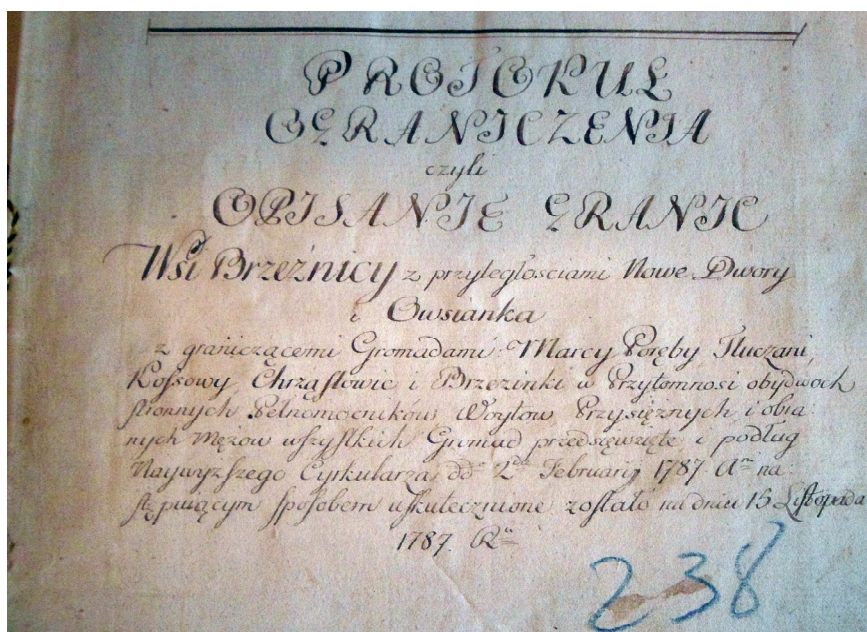 PROTOKUŁ
OGRANICZENIA
czyli
OPISANIE GRANIC
Wsi Brzeźnicy z przyległosciami Nowe Dwory
i Owsianka
z graniczącemi Gromadami: Marcy Poręby Tłuczani,
Kossowy, Chrząstowic i Brzezinki w Przytomnosi obÿdwoch
stronnych Pełnomocników Woytow Przysięznych i obia:
nych Męzow wszystkich Gromad przedsęwzięte i podług
Naywyzszego Cyrkularza dd 2 Februarij 1787 A na:
stępuiącym sposobem uskutecznione zostało na dniu 15 Listopada
1787. R
238